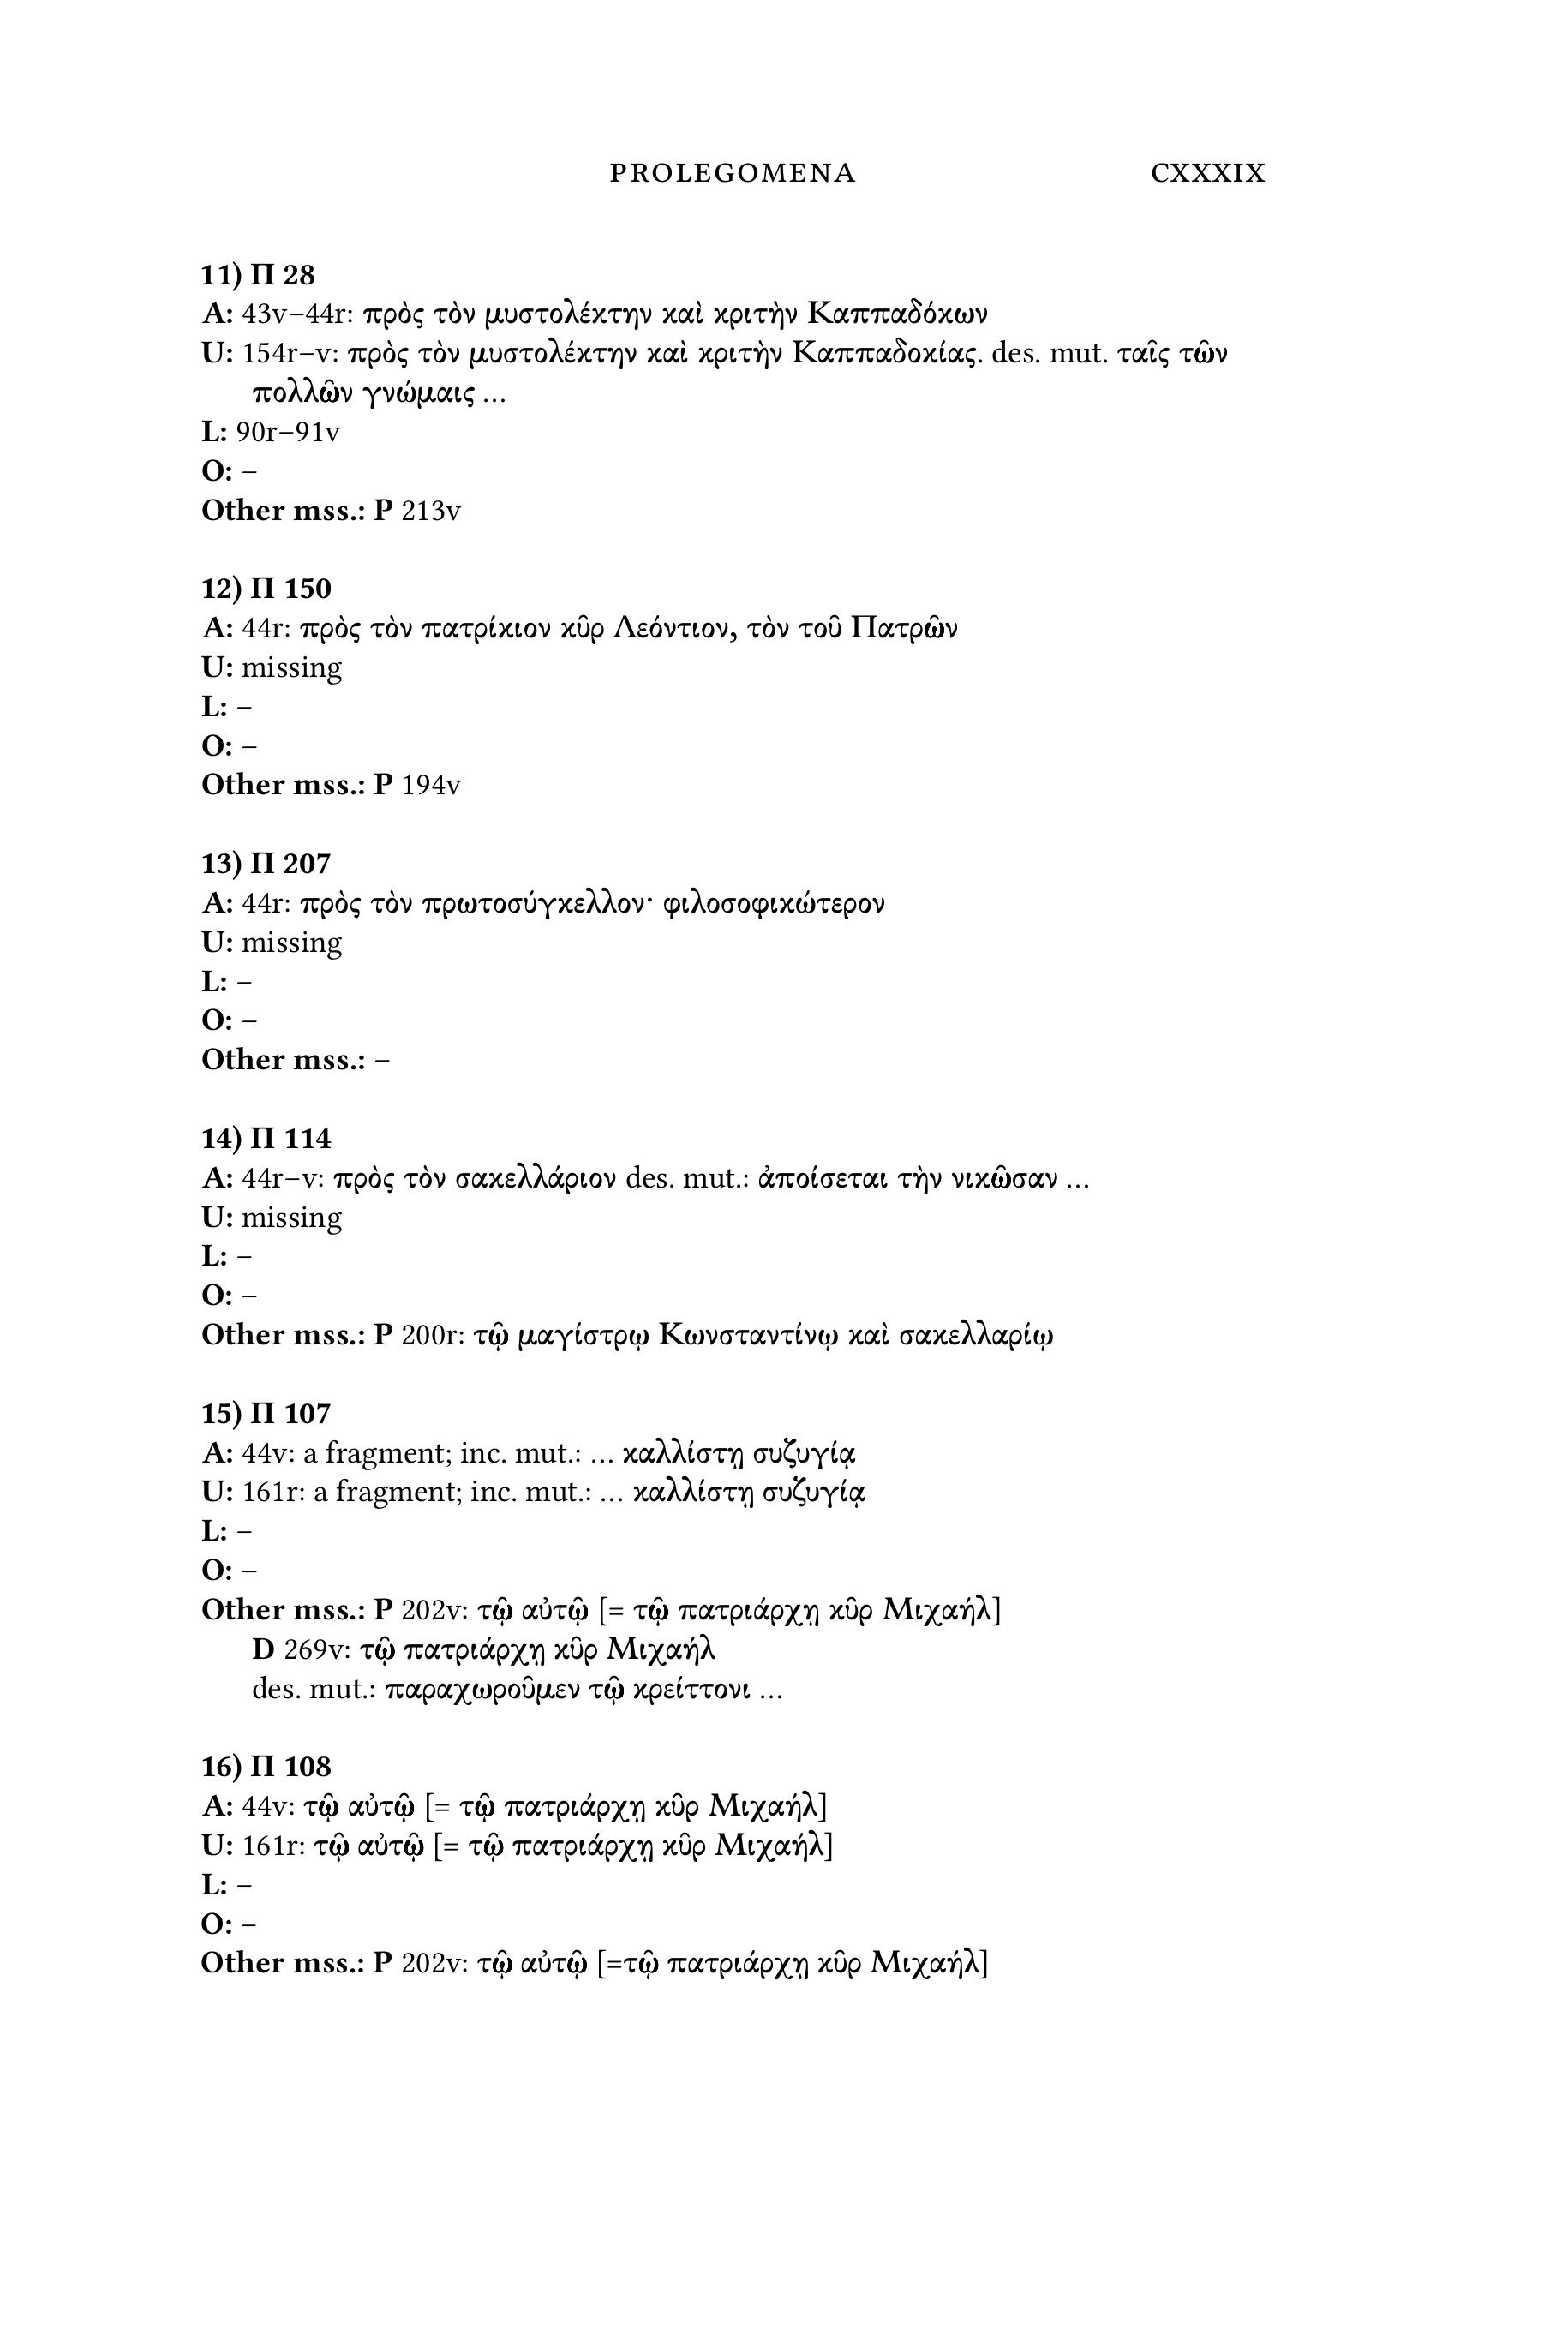 PROLEGOMENA CXXXIX
11) Π 28
A: 43v–44r: πρὸς τὸν μυστολέκτην καὶ κριτὴν Καππαδόκων
U: 154r–v: πρὸς τὸν μυστολέκτην καὶ κριτὴν Καππαδοκίας. des. mut. ταῖς τῶν
πολλῶν γνώμαις …
L: 90r–91v
O: –
Other mss.: P 213v
12) Π 150
A: 44r: πρὸς τὸν πατρίκιον κῦρ Λεόντιον, τὸν τοῦ Πατρῶν
U: missing
L: –
O: –
Other mss.: P 194v
13) Π 207
A: 44r: πρὸς τὸν πρωτοσύγκελλον· φιλοσοφικώτερον
U: missing
L: –
O: –
Other mss.: –
14) Π 114
A: 44r–v: πρὸς τὸν σακελλάριον des. mut.: ἀποίσεται τὴν νικῶσαν …
U: missing
L: –
O: –
Other mss.: P 200r: τῷ μαγίστρῳ Κωνσταντίνῳ καὶ σακελλαρίῳ
15) Π 107
A: 44v: a fragment; inc. mut.: … καλλίστῃ συζυγίᾳ
U: 161r: a fragment; inc. mut.: … καλλίστῃ συζυγίᾳ
L: –
O: –
Other mss.: P 202v: τῷ αὐτῷ [= τῷ πατριάρχῃ κῦρ Μιχαήλ]
D 269v: τῷ πατριάρχῃ κῦρ Μιχαήλ
des. mut.: παραχωροῦμεν τῷ κρείττονι …
16) Π 108
A: 44v: τῷ αὐτῷ [= τῷ πατριάρχῃ κῦρ Μιχαήλ]
U: 161r: τῷ αὐτῷ [= τῷ πατριάρχῃ κῦρ Μιχαήλ]
L: –
O: –
Other mss.: P 202v: τῷ αὐτῷ [=τῷ πατριάρχῃ κῦρ Μιχαήλ]